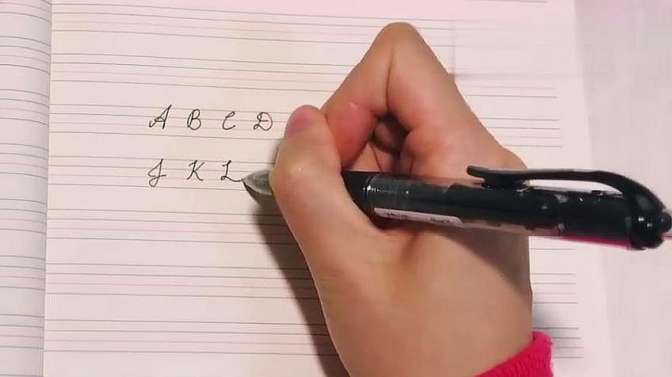 A B C D
J K L